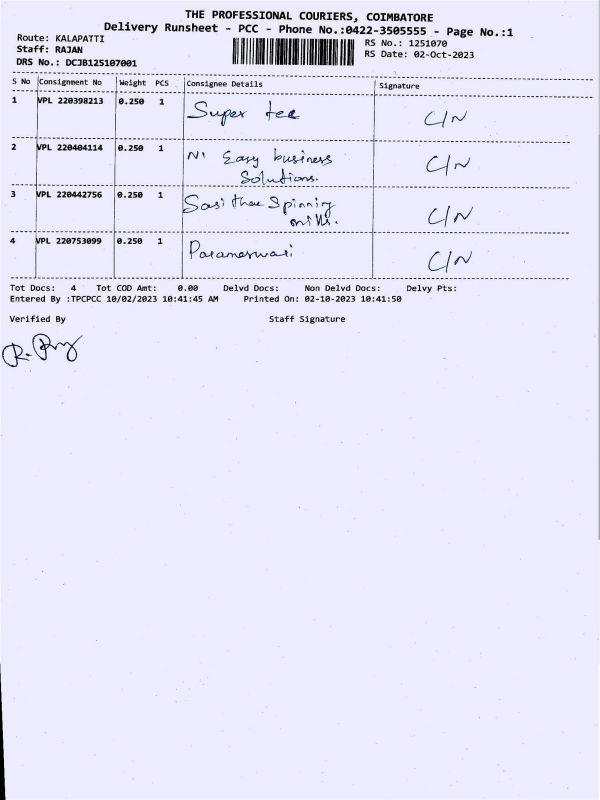 THE PROFESSIONAL COURIERS, COIMBATORE
Delivery Runsheet - PCC - Phone No.:0422-3505555 - Page No.:1
Route: KALAPATTI
Staff: RAJAN
DRS No.: DCJB125107001
RS No.: 1251070
RS Date: 02-Oct-2023
S No Consignment No Weight PCS Consignee Details Signature
1 VPL 220398213 0.250 1 Super tec C/N
2 VPL 220404114 0.250 1 N1 Easy business C/N
Solutions.
3 VPL 220442756 0.250 1 Sasi thae Spinning C/N
mills.
4 VPL 220753099 0.250 1 Parameswari C/N
Tot Docs: 4 Tot COD Amt: 0.00 Delvd Docs: Non Delvd Docs: Delvy Pts:
Entered By :TPCPCC 10/02/2023 10:41:45 AM Printed On: 02-10-2023 10:41:50
Verified By Staff Signature